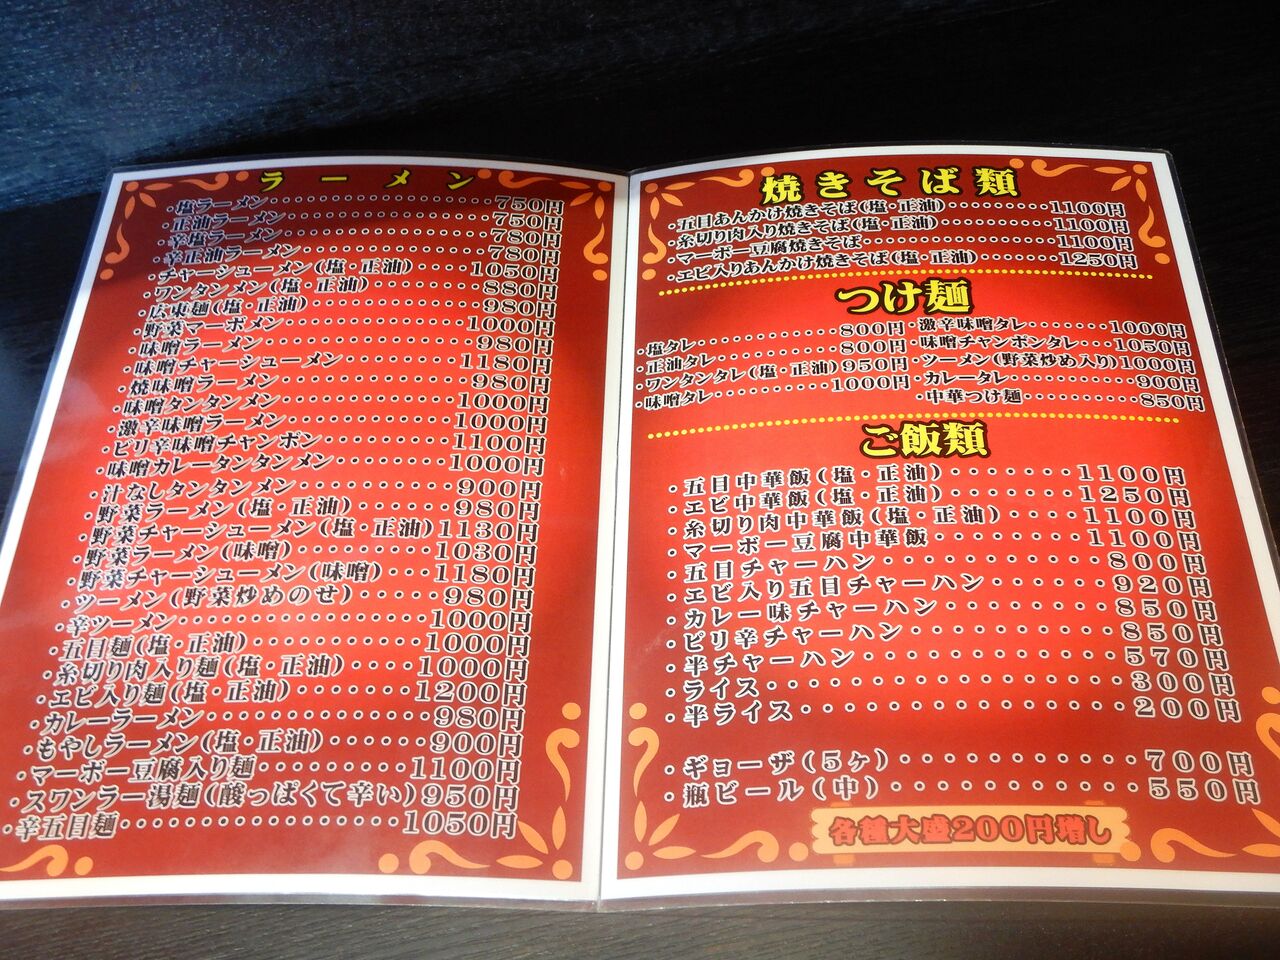 ラーメン
・塩ラーメン・・・・・・・・・・・・・・・・・・750円
・正油ラーメン・・・・・・・・・・・・・・・・・750円
・辛塩ラーメン・・・・・・・・・・・・・・・・・780円
・辛正油ラーメン・・・・・・・・・・・・・・・・780円
・チャーシューメン(塩・正油)・・・・1050円
・ワンタンメン(塩・正油)・・・・・・・・880円
・広東麺(塩・正油)・・・・・・・・・・・・・980円
・野菜マーボメン・・・・・・・・・・・・・・1000円
・味噌ラーメン・・・・・・・・・・・・・・・・・980円
・味噌チャーシューメン・・・・・・・・・1180円
・焼味噌ラーメン・・・・・・・・・・・・・・・980円
・味噌タンタンメン・・・・・・・・・・・・1000円
・激辛味噌ラーメン・・・・・・・・・・・・1000円
・ピリ辛味噌チャンポン・・・・・・・・・1100円
・味噌カレータンタンメン・・・・・・・・1000円
・汁なしタンタンメン・・・・・・・・・・・・900円
・野菜ラーメン(塩・正油)・・・・・・・・980円
・野菜チャーシューメン(塩・正油)1130円
・野菜ラーメン(味噌)・・・・・・・・・・1030円
・野菜チャーシューメン(味噌)・・・・1180円
・ツーメン(野菜炒めのせ)・・・・・・・・980円
・辛ツーメン・・・・・・・・・・・・・・・・・・1000円
・五目麺(塩・正油)・・・・・・・・・・・・1000円
・糸切り肉入り麺(塩・正油)・・・・・1000円
・エビ入り麺(塩・正油)・・・・・・・・・1200円
・カレーラーメン・・・・・・・・・・・・・・・・980円
・もやしラーメン(塩・正油)・・・・・・・900円
・マーボー豆腐入り麺・・・・・・・・・・・1100円
・スワンラー湯麺(酸っぱくて辛い)950円
・辛五目麺・・・・・・・・・・・・・・・・・・・・1050円
焼きそば類
・五目あんかけ焼きそば(塩・正油)・・・・・・・・1100円
・糸切り肉入り焼きそば(塩・正油)・・・・・・・・1100円
・マーボー豆腐焼きそば・・・・・・・・・・・・・・・・1100円
・エビ入りあんかけ焼きそば(塩・正油)・・・・・・1250円
つけ麺
・塩タレ・・・・・・・・・・・・・・800円
・正油タレ・・・・・・・・・・・・・800円
・ワンタンタレ(塩・正油)950円
・味噌タレ・・・・・・・・・・・・1000円
・激辛味噌タレ・・・・・・・1000円
・味噌チャンポンタレ・・・1050円
・ツーメン(野菜炒め入り)1000円
・カレータレ・・・・・・・・・・・900円
・中華つけ麺・・・・・・・・・・850円
ご飯類
・五目中華飯(塩・正油)・・・・・・・1100円
・エビ中華飯(塩・正油)・・・・・・・1250円
・糸切り肉中華飯(塩・正油)・・・・1100円
・マーボー豆腐中華飯・・・・・・・・・1100円
・五目チャーハン・・・・・・・・・・・・・800円
・エビ入り五目チャーハン・・・・・・・920円
・カレー味チャーハン・・・・・・・・・・850円
・ピリ辛チャーハン・・・・・・・・・・・・850円
・半チャーハン・・・・・・・・・・・・・・・570円
・ライス・・・・・・・・・・・・・・・・・・・・300円
・半ライス・・・・・・・・・・・・・・・・・・200円
・ギョーザ(5ヶ)・・・・・・・・・・・・・700円
・瓶ビール(中)・・・・・・・・・・・・・・550円
各種大盛200円増し